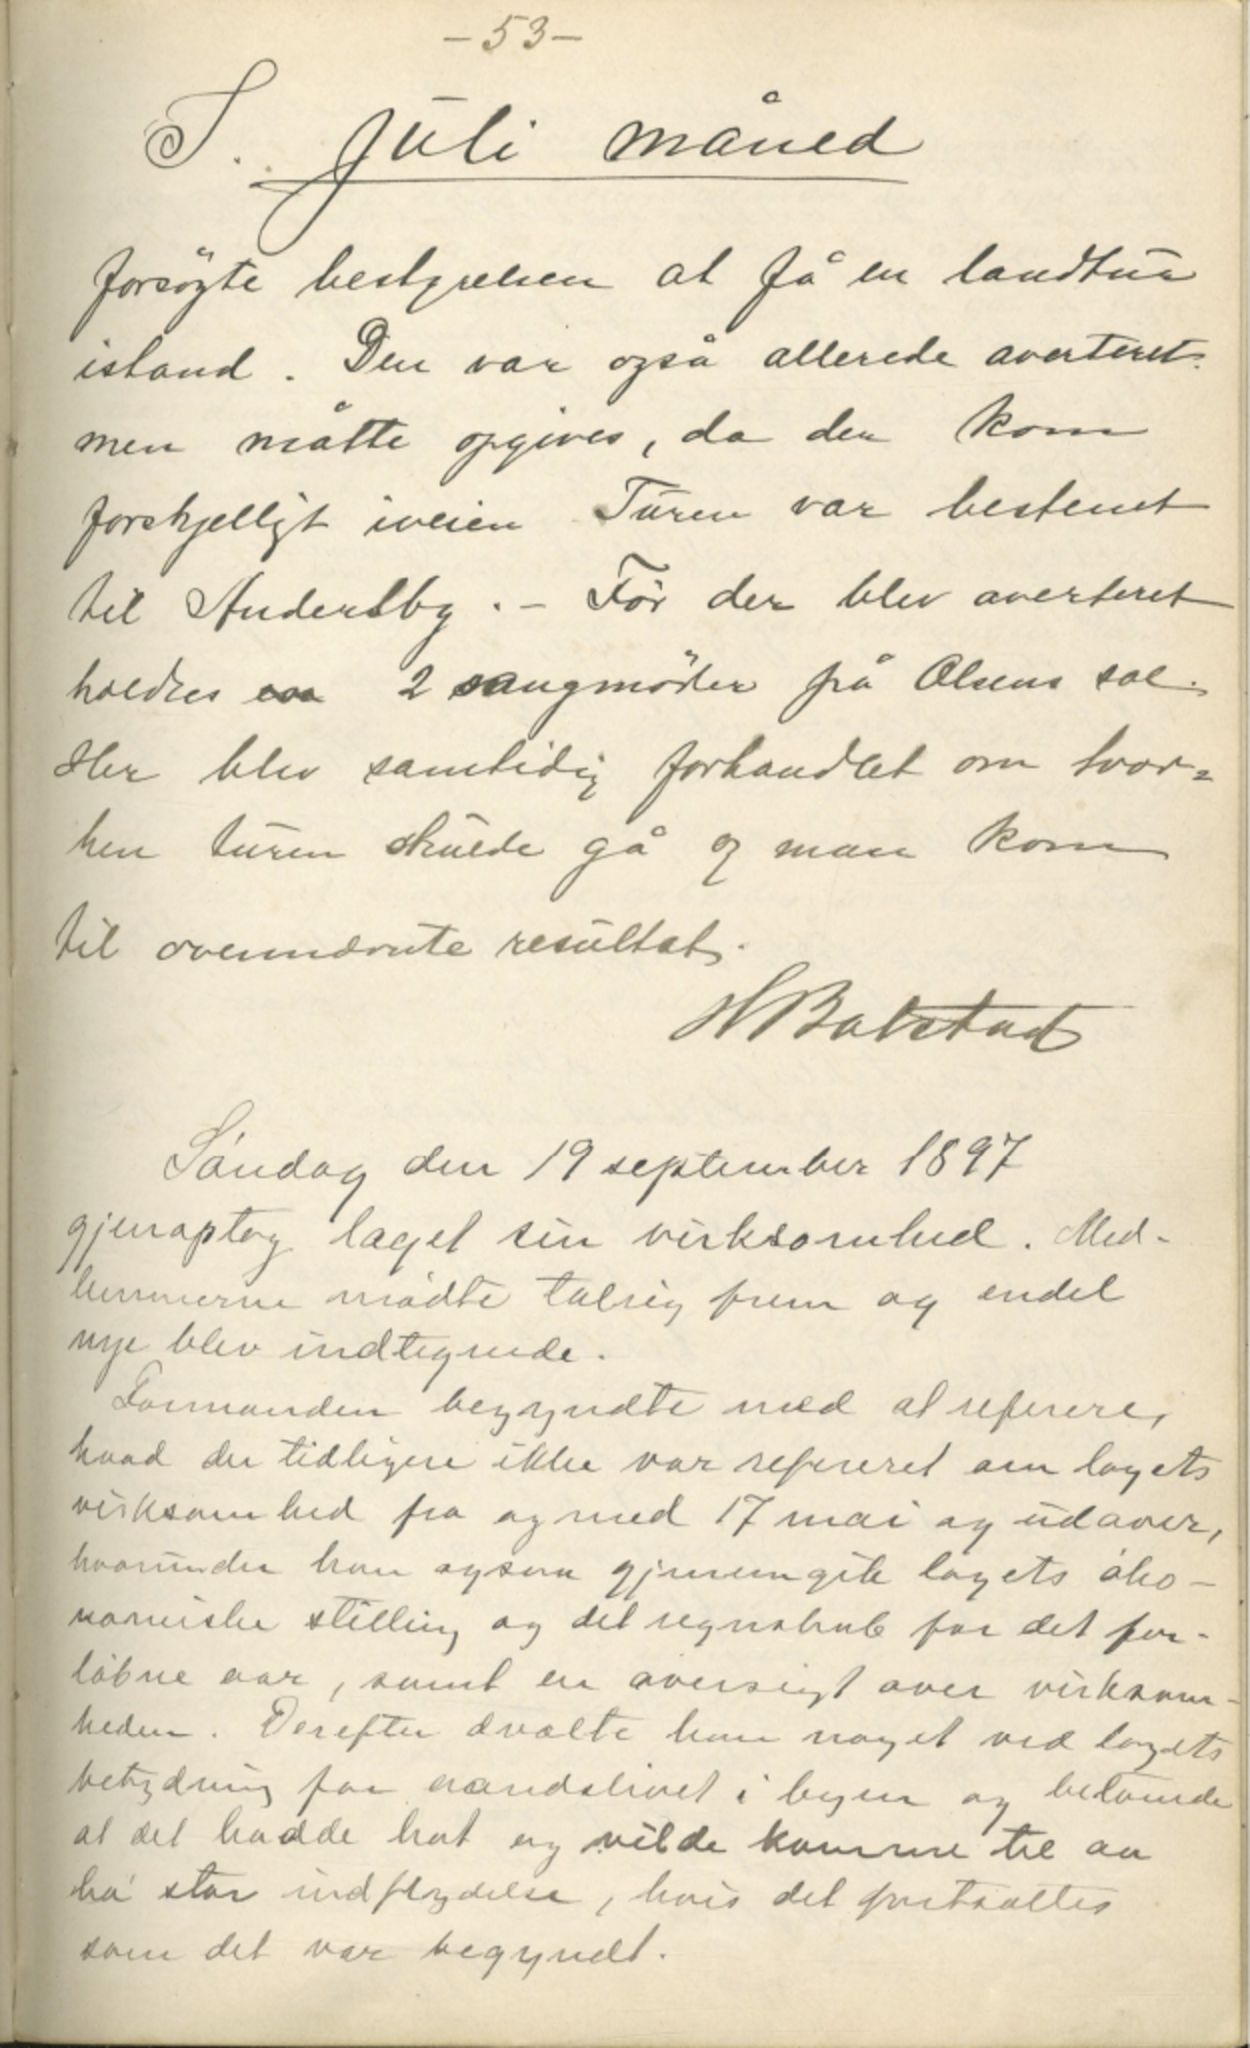 - 53 -
I. Juli måned
forsøgte bestyrelsen at få en landtur
istand. Den var også allerede averteret.
men måtte opgives, da der kom
forskjelligt iveien Turen var bestemt
til Andersby. - Før der blev averteret
holdtes 2 sangmøder på Olsens sal.
Her blev samtidig forhandlet om hvor=
hen turen skulde gå og man kom
til ovennævnte resultat.
H Batstad
Søndag den 19 september 1897
gjenoptog laget sin virksomhed. Med-
lemmerne mødte talrig frem og endel
nye blev indtegnede.
Formanden begyndte med at referere,
hvad der tidligere ikke var refereret om lagets
virksomhed fra og med 17 mai og udover,
hvorunder han ogsaa gjennemgik lagets øko-
nomiske stilling og det regnskab for det for-
løbne aar, samt en oversigt over virksom-
heden. Derefter dvælte han noget ved lagets
betydning for aandslivet i byen og betonede
at det hadde hat og vilde komme til aa
ha stor indflydelse, hvis det fortsattes
som det var begyndt.